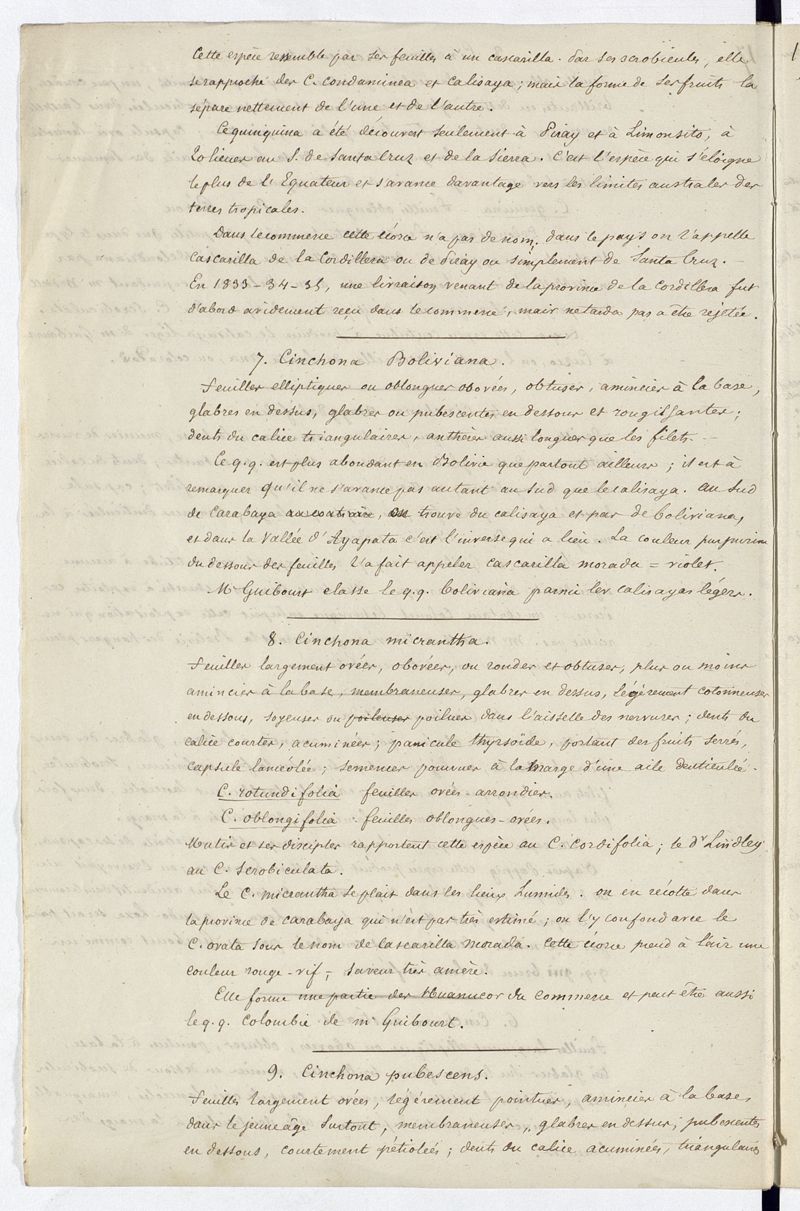 Cette espèce ressemble par ses feuilles à un cascarilla. Par ses scrobicules, elle
se rapproche des C. Condaminea et Calisaya; mais la forme de ses fruits la
sépare nettement de l'une et de l'autre.
Ce quinquina a été découvert seulement à Piray et à Limonsito, à
20 lieues au S. de Santa Cruz et de la Sierra. C'est l'espèce qui s'éloigne
le plus de l'Equateur et s'avance davantage vers les limites australes des
terres tropicales.
Dans le commerce cette écorce n'a pas de nom; dans le pays on l'appelle
cascarilla de la Cordillera ou de Piray ou simplement de Santa Cruz. -
En 1833-34-35, une livraison venant de la province de la Cordillera fut
d'abord avidement reçu dans le commerce, mais ne tarda pas a être rejetée.
7. Cinchona Boliviana.
Feuilles elliptiques ou oblongues obovées, obtuses, amincies à la base,
glabres en dessus, glabres ou pubescentes en dessous et rougissantes;
dents du calice triangulaires, anthères aussi longues que les filets. -
Ce q.q. est plus abondant en Bolivie que partout ailleurs; il est à
remarquer qu'il ne s'avance pas autant au Sud que le calisaya. au Sud
de Carabaya au contraire, on trouve du calisaya et pas de boliviana,
et dans la Vallée d'Ayapata c'est l'inverse qui a lieu. La couleur purpurine
du dessous des feuilles l'a fait appeler cascarilla morada = violet.
Mr Guibourt classe le q.q. boliviana parmi les calisayas légers.
8. Cinchona micrantha.
Feuilles largement ovées, obovées, ou rondes et obtuses, plus ou moins
amincies à la base, membraneuses, glabres en dessus, légèrement cotonneuses
en dessous, soyeuses ou poileuses poilues dans l'aisselle des nervures; dents du
calice courtes, acuminées; panicule thyrsoïde, portant des fruits serrés,
capsule lancéolée; semences pourvues à la marge d'une aile denticulée.
C. rotundifolia feuilles ovées-arrondies.
C. oblongifolia feuilles oblongues-ovées.
Mutis et ses disciples rapportent cette espèce au C. Cordifolia; le dr Lindley
au C. Scrobiculata.
Le C. micrantha se plait dans les lieux humides. on en récolte dans
la province de Carabaya qui n'est pas très estimé; on l'y confond avec le
C. ovata sous le nom de Cascarilla morada. Cette écorce prend à l'air une
couleur rouge-vif; saveur très amère.
Elle forme une partie des Huanucos du commerce et peut être aussi
le q.q. Colombie de mr Guibourt.
9. Cinchona pubescens.
Feuilles largement ovées, légèrement pointues, amincies à la base
dans le jeune âge surtout; membraneuses, glabres en dessus, pubescentes
en dessous, courtement pétiolées; dents du calice acuminées, triangulaires